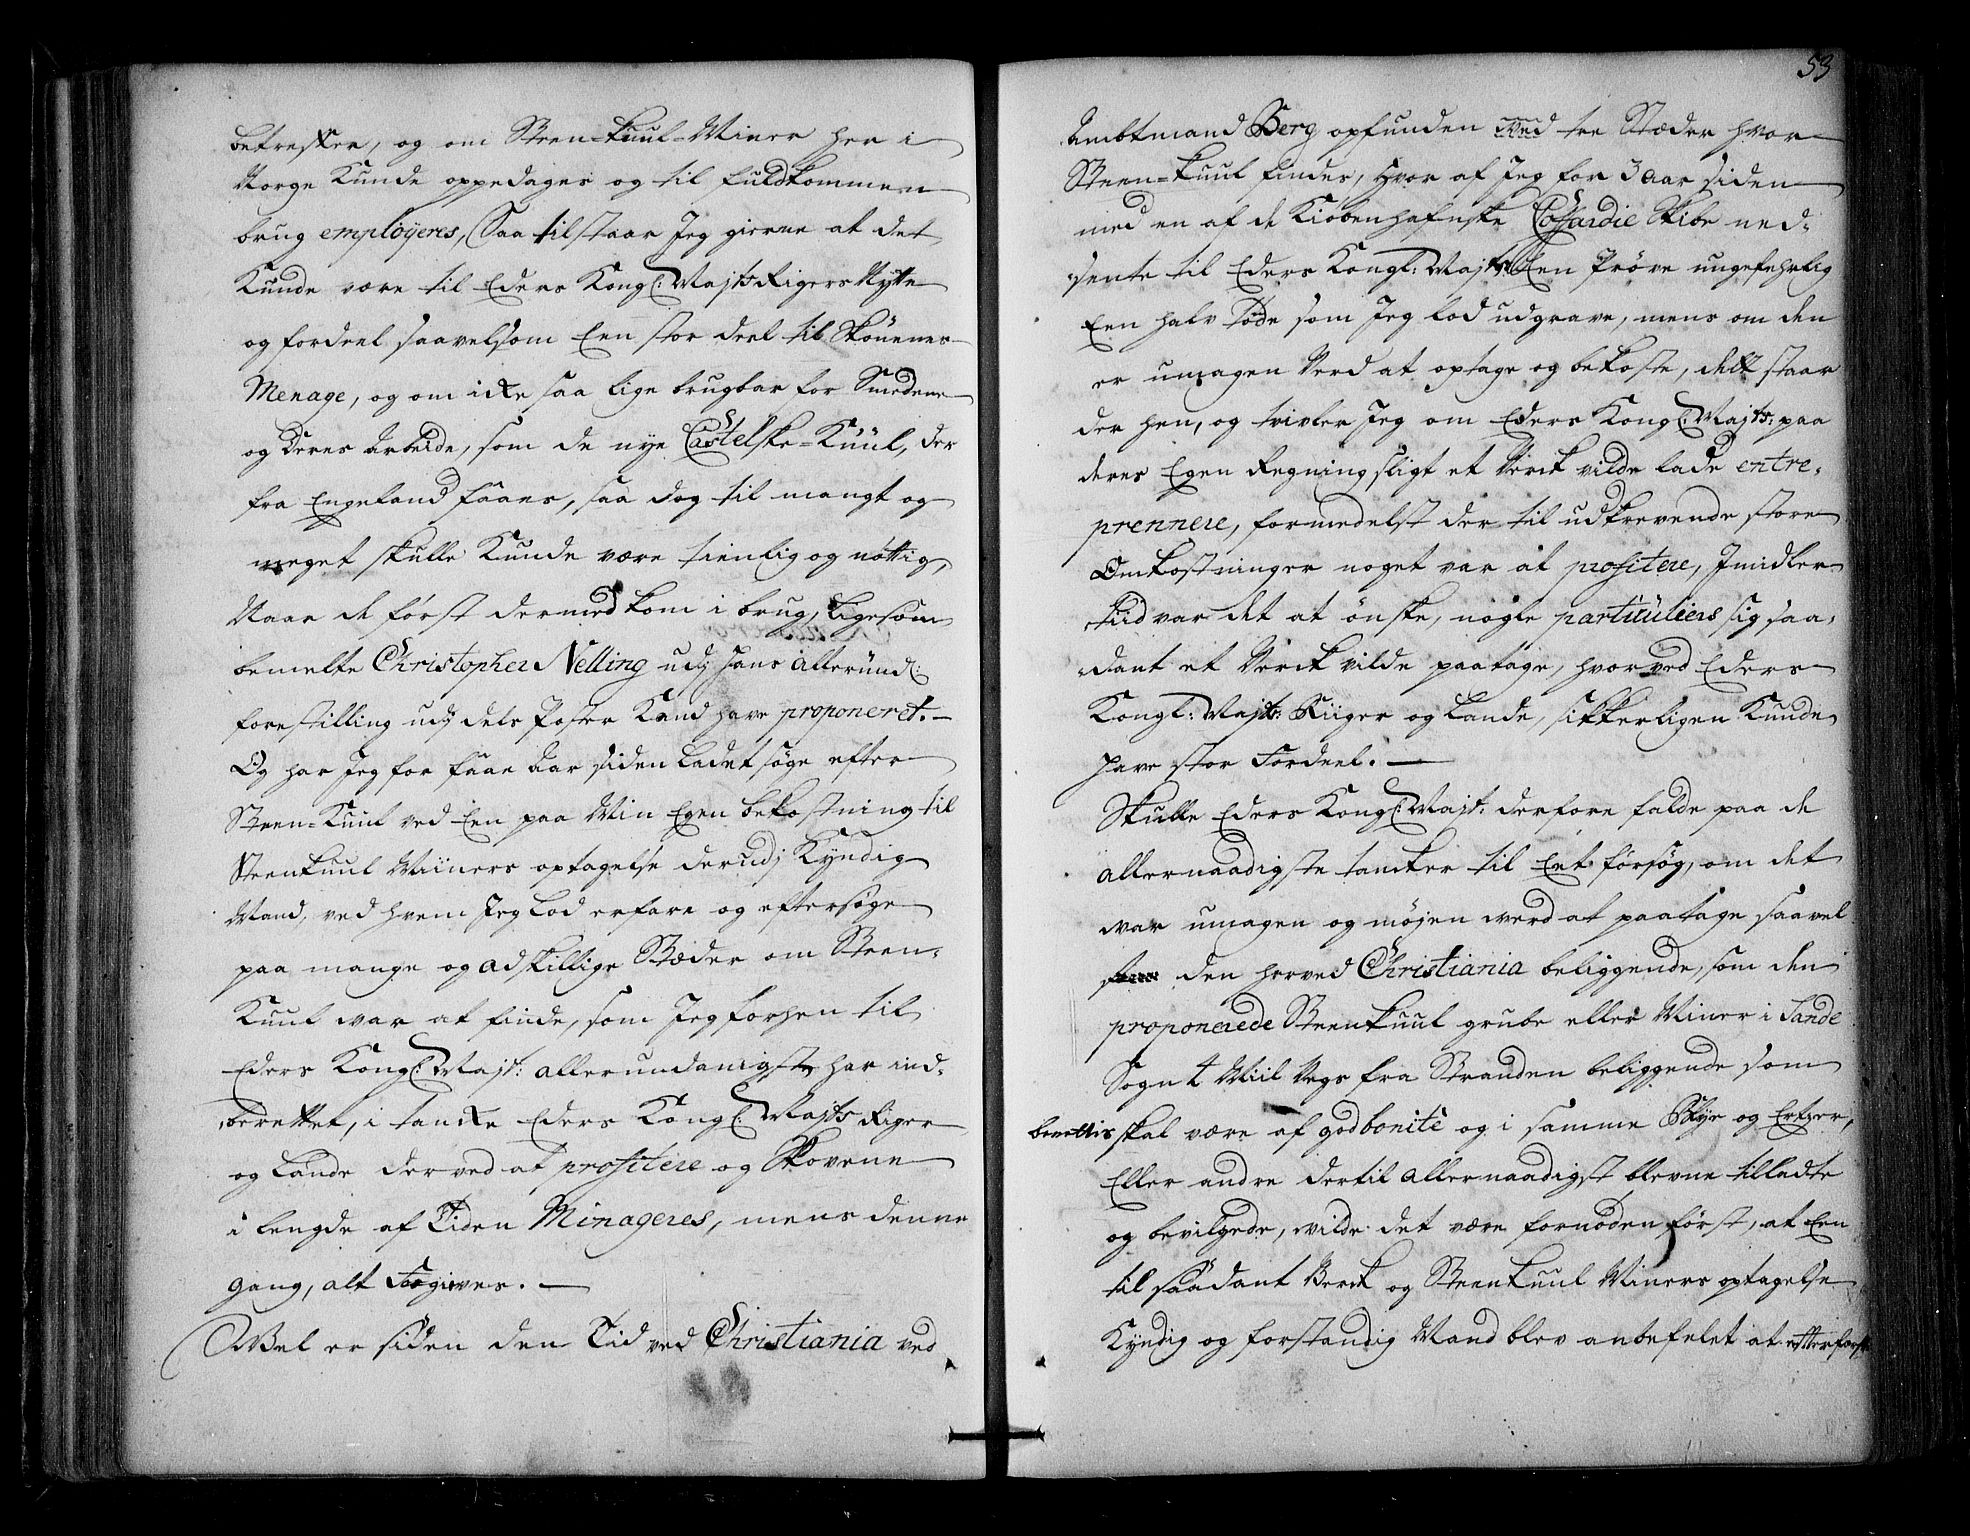 betreffer, og om Steen-kuul-Miner her i
Norge kunde oppedages og til fuldkommen
brug employeres, Saa tilstaar Jeg gierne at det
kunde være til Eders Kongl: Majts Rigers Nytte
og fordeel saavelsom Een stor deel til Skouenes
Menage, og om icke saa lige brugbar for Smedene
og deres Arbeide, som de nye Castelske-Kuul, der
fra Engeland faaes, saa dog til mangt og
meget skulle kunde være tienlig og nøttig,
Naar de først dermed kom i brug, Ligesom
bemelte Christopher Nelling udj hans allerund:
forestilling udj dets Poster kand have proponeret.—
Og har Jeg for faae Aar siden Ladet søge efter
Steen-Kuul ved Een paa Min Egen bekostning til
Steenkuul Miiners optagelse derudj Kyndig
Mand, ved hvem Jeg Lod erfare og eftersøge
paa mange og adskillige Stæder om Steen-
Kuul war at finde, som Jeg forhen til
Eders Kongl: Majt: allerundanigst har ind-
berettet, i tancke Eders Kongl: Majts Riger
og Lande derved at profitere og Skovene
i lengde af Tiden Minageres, mens denne
gang, alt forgieves. —
Wel er siden den Tid ved Christiania ved
53
Ambtmand Berg opfunden ved tre Stæder hvor
Steen-kuul findes, hvor af Jeg for 3 aar siden
med en af de Kiøbenhafnske Coffardie Skibe ned-
sente til Eders Kongl: Majts Een Prøve ungefehrlig
Een halv Tøde som Jeg lod udgrave, mens om den
er umagen Verd at optage og bekoste, dett staar
der hen, og tvivler Jeg om Eders Kongl: Majts: paa
deres Egen Regning sligt et Verck vilde lade entre-
prennere, formedelst der til udkrevende store
Omkostninger noget var at profitere, Imidler-
tiid var det at ønske, nogle particuliers sig saa-
dant et Verck vilde paatage, hvorved Eders
Kongl: Majts: Riiger og Lande, sikkerligen kunde
have stor Fordeel. —
Skulle Eders Kongl: Majt: derfore falde paa de
allernaadigste tancker til Eet forsøg, om det
war umagen og møjen werd at paatage saavel
den herved Christiania beliggende, som den
proponerede Steenkuul grube eller Miner i Sande
Sogn Miil Vegs fra Stranden beliggende som
berettis skal være af god bonite og i samme og Ertzer,
Eller andre dertil allernaadigst blevne tilladte
og bevilgede, wilde det være fornøden først, at Een
til saadant Verck og Steenkuul Miners optagelse
Kyndig og forstandig Mand blev anbefelet at efterforsk